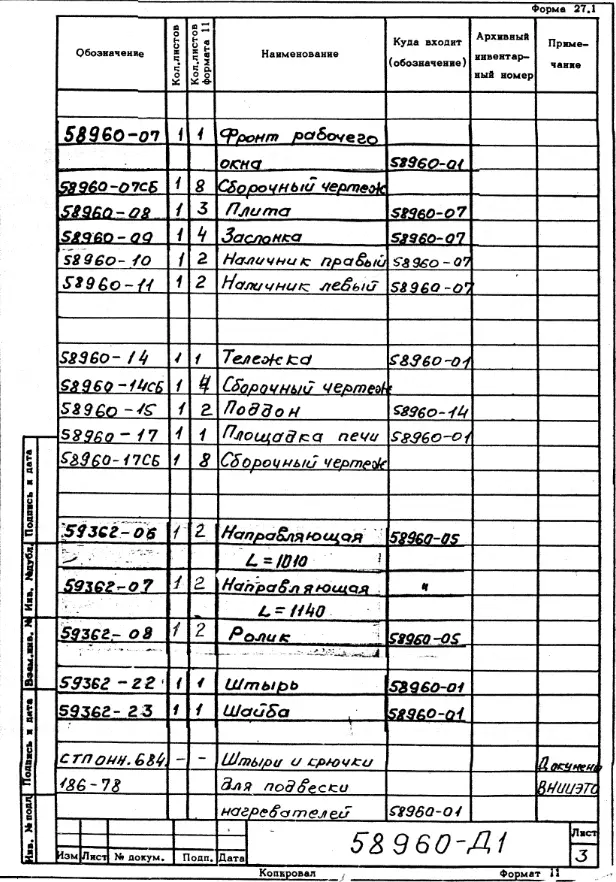 Форма 27.1
Обозначение Кол.листов Кол.листов формата 11 Наименование Куда входит (обозначение) Архивный инвентар- ный номер Приме- чание
58960-07 1 1 Фронт рабочего
окна 58960-01
58960-07СБ 1 8 Сборочный чертеж
58960-08 1 3 Плита 58960-07
58960-09 1 4 Заслонка 58960-07
58960-10 1 2 Наличник правый 58960-07
58960-11 1 2 Наличник левый 58960-07
58960-14 1 1 Тележка 58960-01
58960-14СБ 1 4 Сборочный чертеж
58960-15 1 2 Поддон 58960-14
58960-17 1 1 Площадка печи 58960-01
58960-17СБ 1 8 Сборочный чертеж
59362-06 1 2 Направляющая 58960-05
L=1010
59362-07 1 2 Направляющая "
L=1140
59362-08 1 2 Ролик 58960-05
59362-22 1 1 Штырь 58960-01
59362-23 1 1 Шайба 58960-01
СТПОНН.684. - - Штыри и крючки Докумен
186-78 для подвески ВНИИЭТО
нагревателей 58960-01
Подпись и дата
Инв. №дубл.
Взам.инв. №
Подпись и дата
Инв. № подл
Изм Лист № докум. Подп. Дата
58960-Д1
Лист
3
Копировал Формат 11